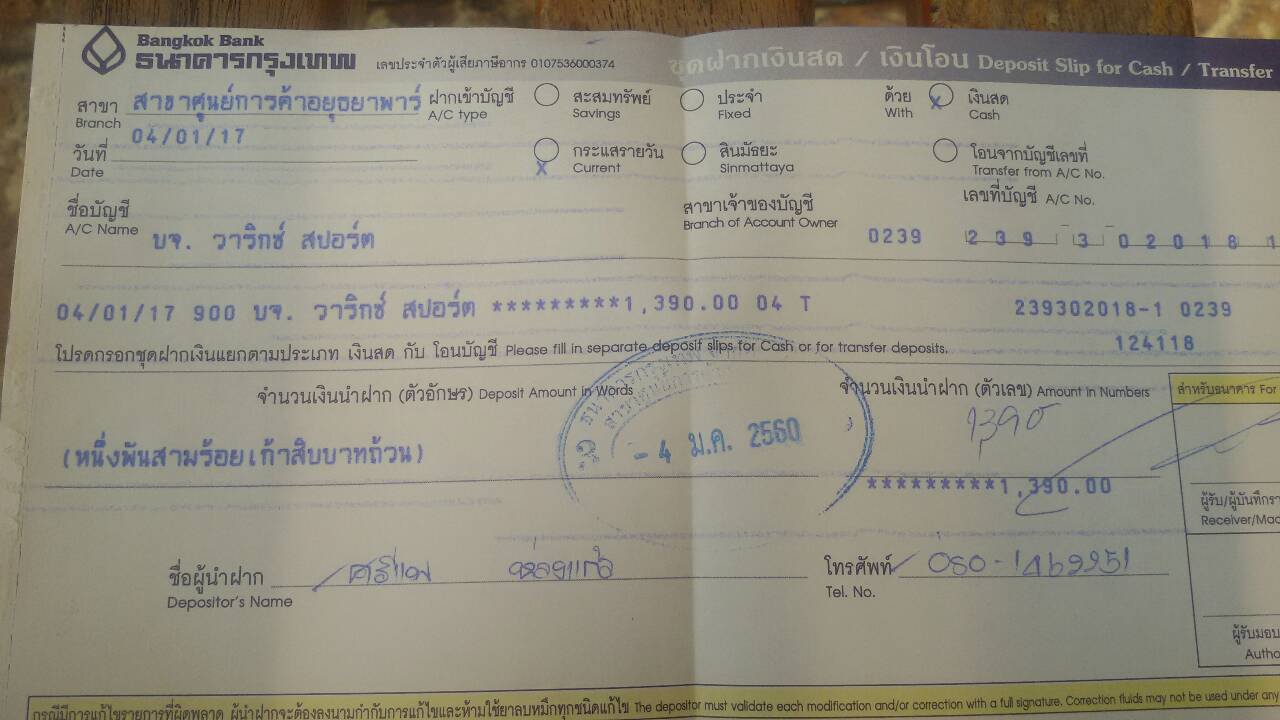 Bangkok Bank
ธนาคารกรุงเทพ
เลขประจำตัวผู้เสียภาษีอากร 0107536000374
ชุดฝากเงินสด / เงินโอน Deposit Slip for Cash / Transfer
สาขา สาขาศูนย์การค้าอยุธยาพาร์
Branch
ฝากเข้าบัญชี
A/C type
สะสมทรัพย์
Savings
ประจำ
Fixed
ด้วย
With
X
เงินสด
Cash
วันที่ 04/01/17
Date
X
กระแสรายวัน
Current
สินมัธยะ
Sinmattaya
โอนจากบัญชีเลขที่
Transfer from A/C No.
ชื่อบัญชี
A/C Name
บจ. วาริกซ์ สปอร์ต
สาขาเจ้าของบัญชี
Branch of Account Owner
0239
เลขที่บัญชี A/C No.
239 3 02018 1
04/01/17 900 บจ. วาริกซ์ สปอร์ต *********1,390.00 04 T 239302018-1 0239
124118
โปรดกรอกชุดฝากเงินแยกตามประเภท เงินสด กับ โอนบัญชี Please fill in separate deposit slips for Cash or for transfer deposits.
จำนวนเงินนำฝาก (ตัวอักษร) Deposit Amount in Words
จำนวนเงินนำฝาก (ตัวเลข) Amount in Numbers
สำหรับธนาคาร For
1390
- 4 ม.ค. 2560
(หนึ่งพันสามร้อยเก้าสิบบาทถ้วน)
*********1,390.00
ผู้รับ/ผู้บันทึกรา
Receiver/Mac
ชื่อผู้นำฝาก
Depositor's Name
โทรศัพท์
Tel. No.
ผู้รับมอบ
Autho
กรณีมีการแก้ไขรายการที่ผิดพลาด ผู้นำฝากจะต้องลงนามกำกับการแก้ไขและห้ามใช้ยาลบหมึกทุกชนิดแก้ไข The depositor must validate each modification and/or correction with a full signature. Correction fluids may not be used under any